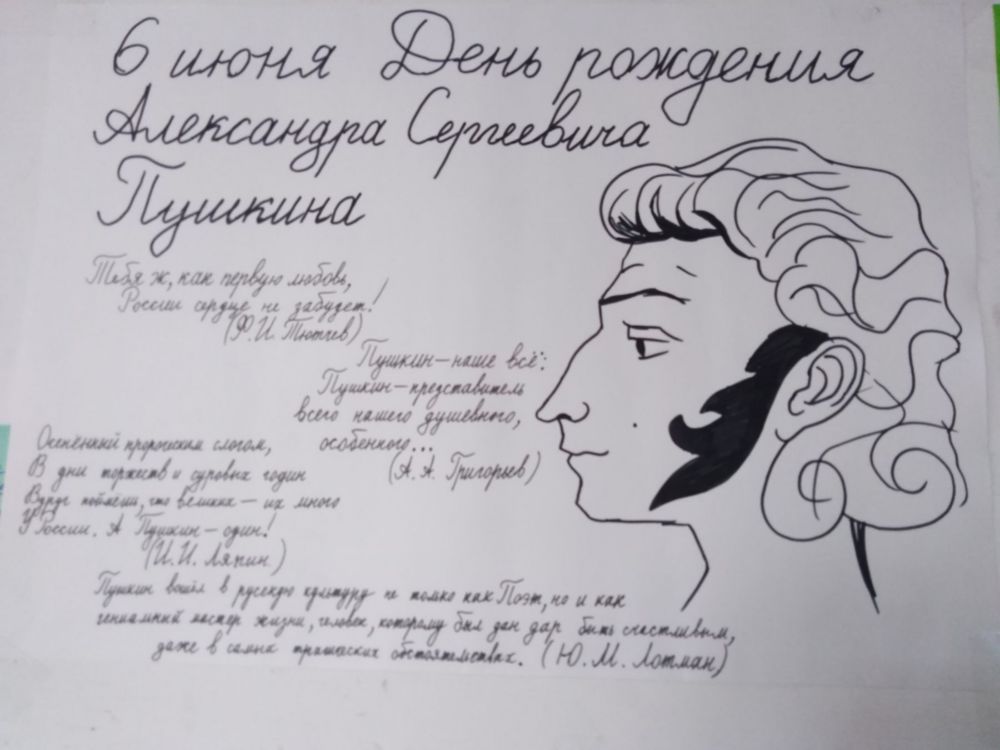 6 июня День рождения
Александра Сергеевича
Пушкина
Тебя ж, как первую любовь,
России сердце не забудет!
(Ф.И. Тютчев)
Пушкин – наше всё:
Пушкин – представитель
всего нашего душевного,
особенного...
(А. А. Григорьев)
Осенённый пророческим слогом,
В дни торжеств и суровых годин
Вдруг поймёшь, что великих – их много
У России. А Пушкин – один!
(И.И. Ляпин)
Пушкин вошёл в русскую культуру не только как Поэт, но и как
гениальный мастер жизни, человек, которому был дан дар быть счастливым,
даже в самых трагических обстоятельствах. (Ю. М. Лотман)